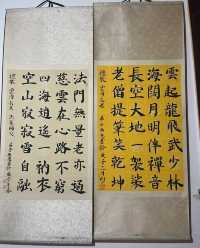 雲起龍飛武少林
海闊月明伴禪音
長空大地一袈裟
老僧提筆笑乾坤
法門無量老亦通
慈雲在心路不窮
四海逍遙一衲衣
空山寂寂雪自融